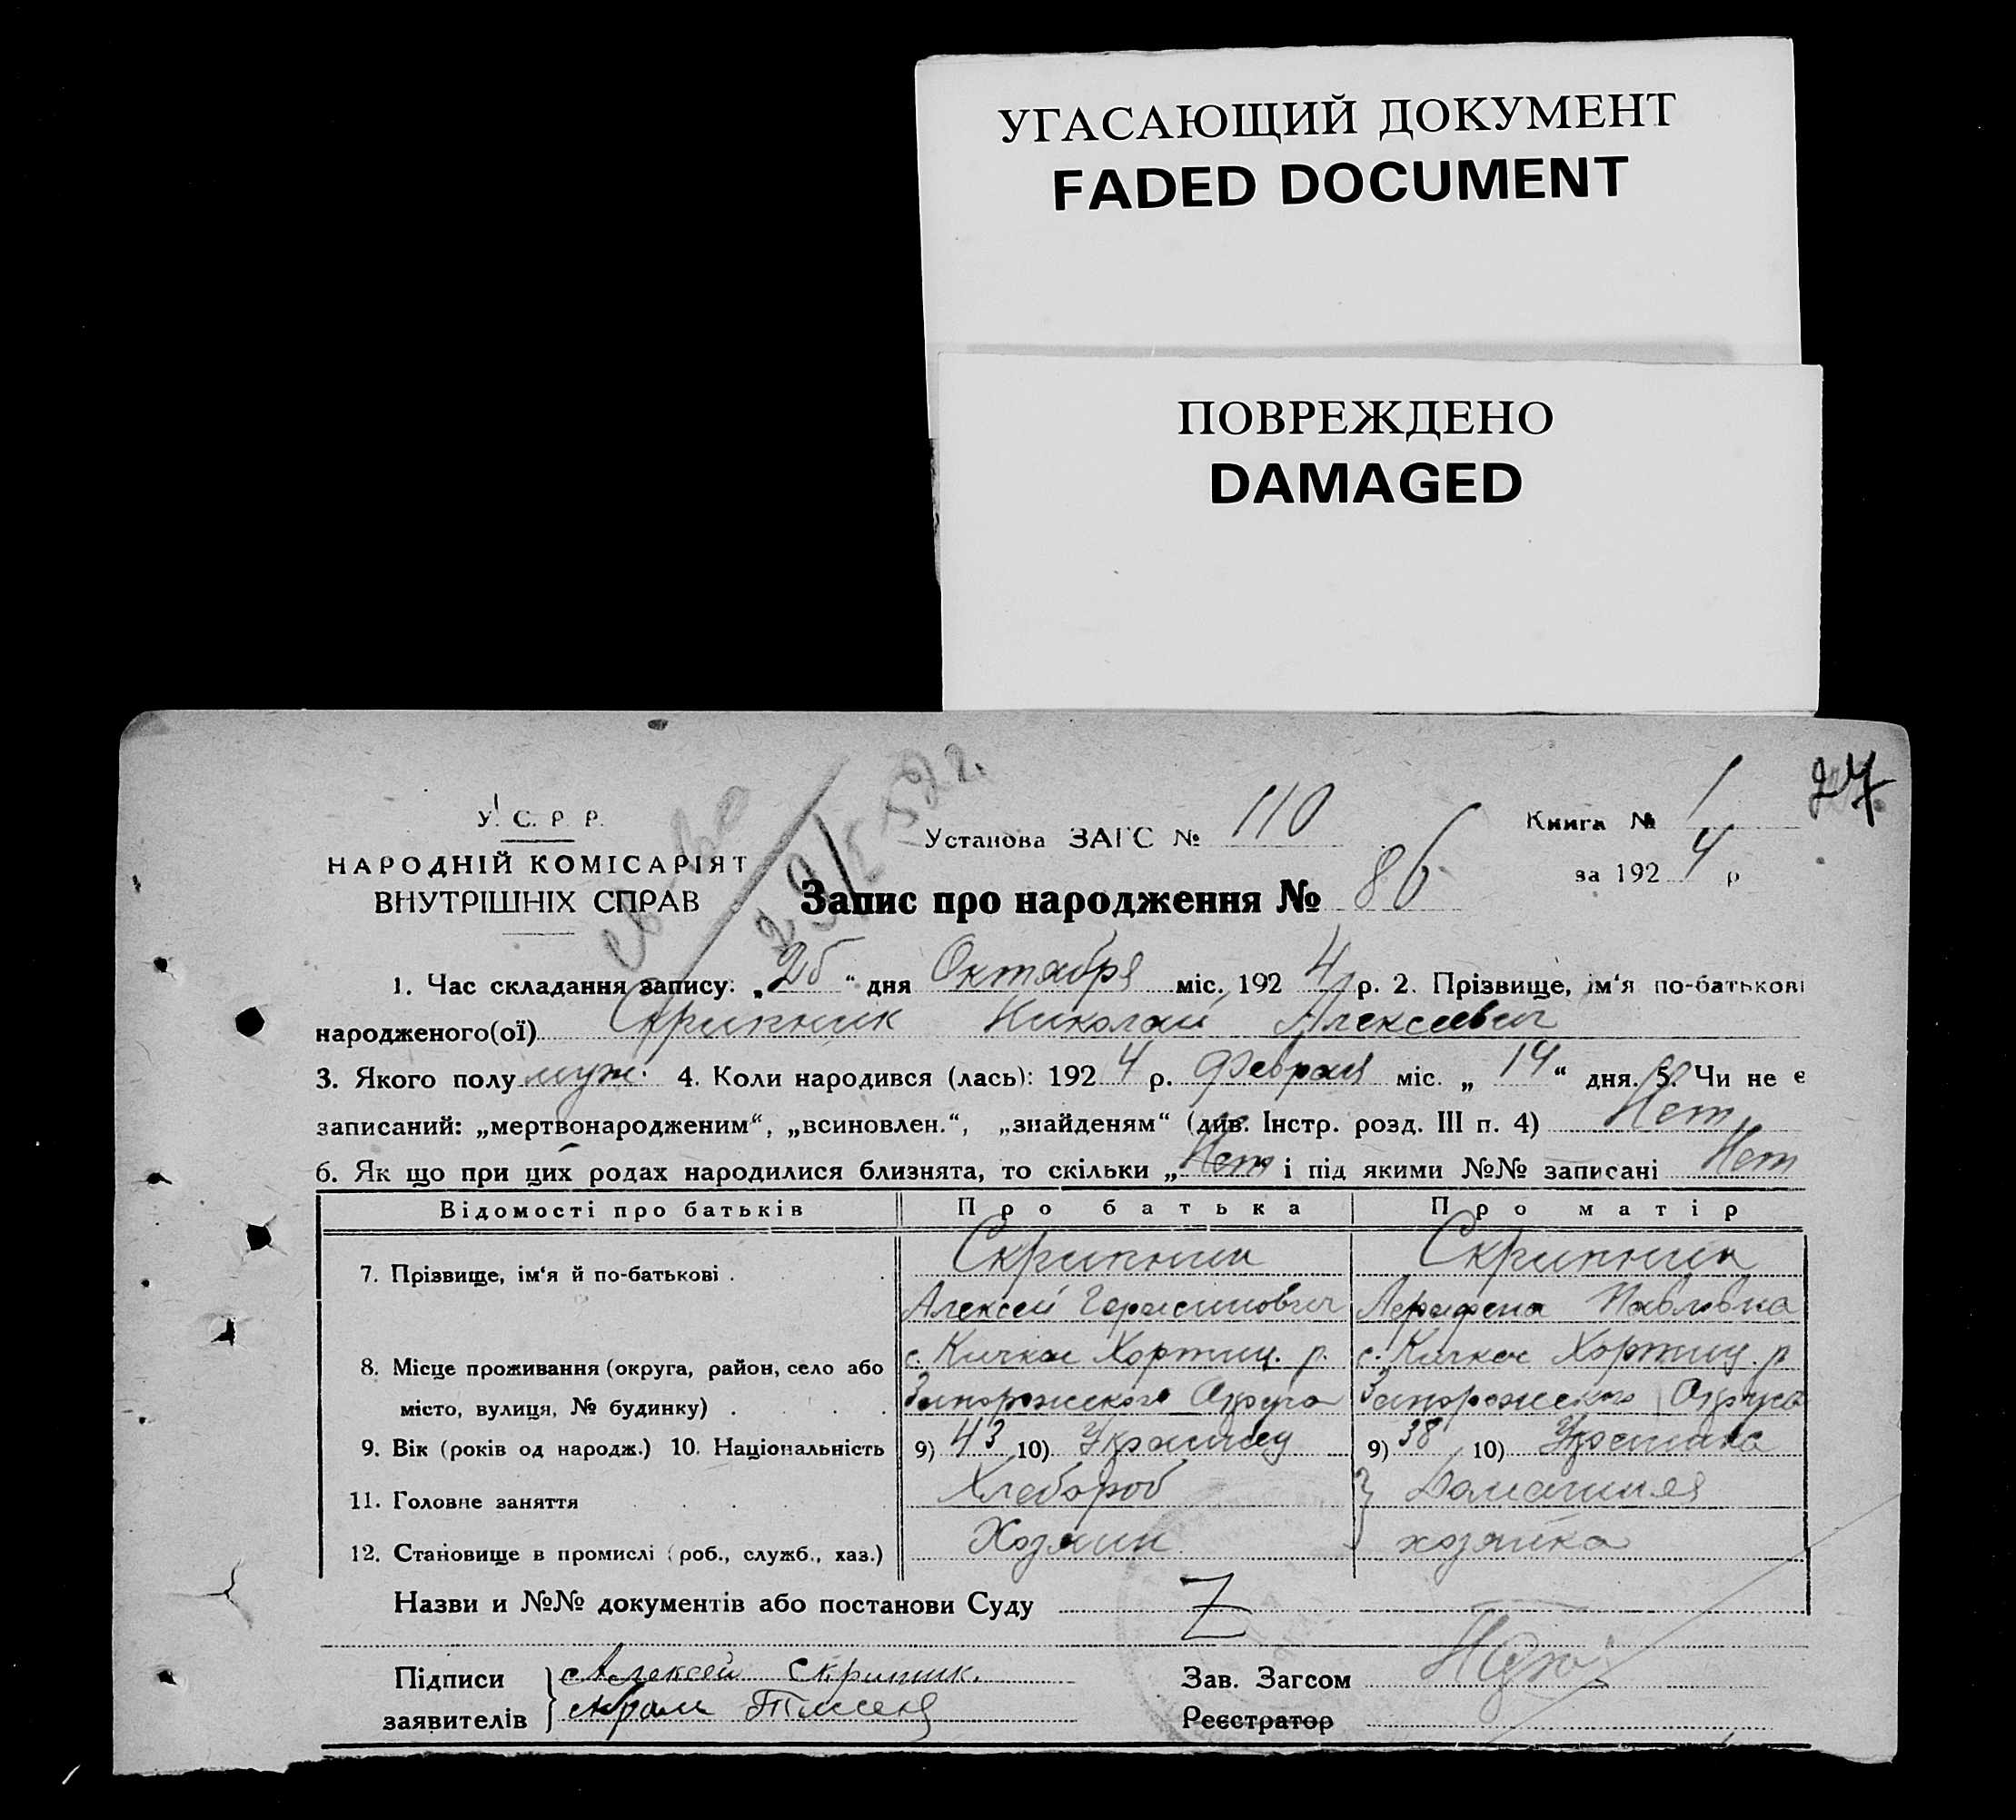 УГАСАЮЩИЙ ДОКУМЕНТ
FADED DOCUMENT
ПОВРЕЖДЕНО
DAMAGED
27
У. С. Р. Р.
НАРОДНІЙ КОМІСАРІЯТ
ВНУТРІШНІХ СПРАВ
Установа ЗАГС № 110
Книга № 1
за 1924 р
Запис про народження № 86
1. Час складання запису: „26“ дня Октября міс. 1924 р. 2. Прізвище, ім‘я по-батькові
народженого(ої) Скрипник Николай Алексеевич
3. Якого полу муж. 4. Коли народився (лась): 1924 р. Февраля міс. „14“ дня. 5. Чи не є
записаний: „мертвонародженим“, „всиновлен.“, „знайденям“ (див. Інстр. розд. III п. 4) Нет
6. Як що при цих родах народилися близнята, то скільки „Нет і під якими №№ записані Нет
Відомості про батьків Про батька Про матір
7. Прізвище, ім‘я й по-батькові . Скрипник Скрипник
Алексей Герасимович Павловна
8. Місце проживання (округа, район, село або с. Кичкас Хортиц. р. с. Кичкас Хортиц. р
місто, вулиця, № будинку) . Запорожского Округа Запорожского Округа
9. Вік (років од народж.) 10. Національність 9) 43 10) Украинец 9) 38 10) Украинка
11. Головне заняття Хлебороб Домашняя
12. Становище в промислі (роб., служб., хаз.) Хозяин хозяйка
Назви и №№ документів або постанови Суду Z
Підписи Алексей Скрипник. Зав. Загсом
заявителів Абрам Реєстратор